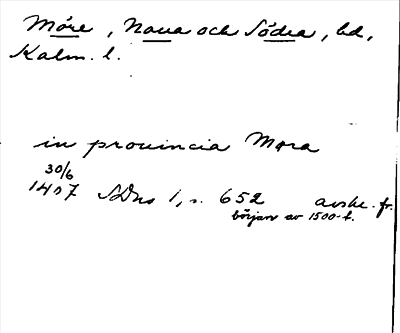 Möre, Norra och Södra, hd,
Kalm. l.
in prouincia Møra
30/6
1407 SDns 1, s. 652 avskr. fr.
början av 1500-t.